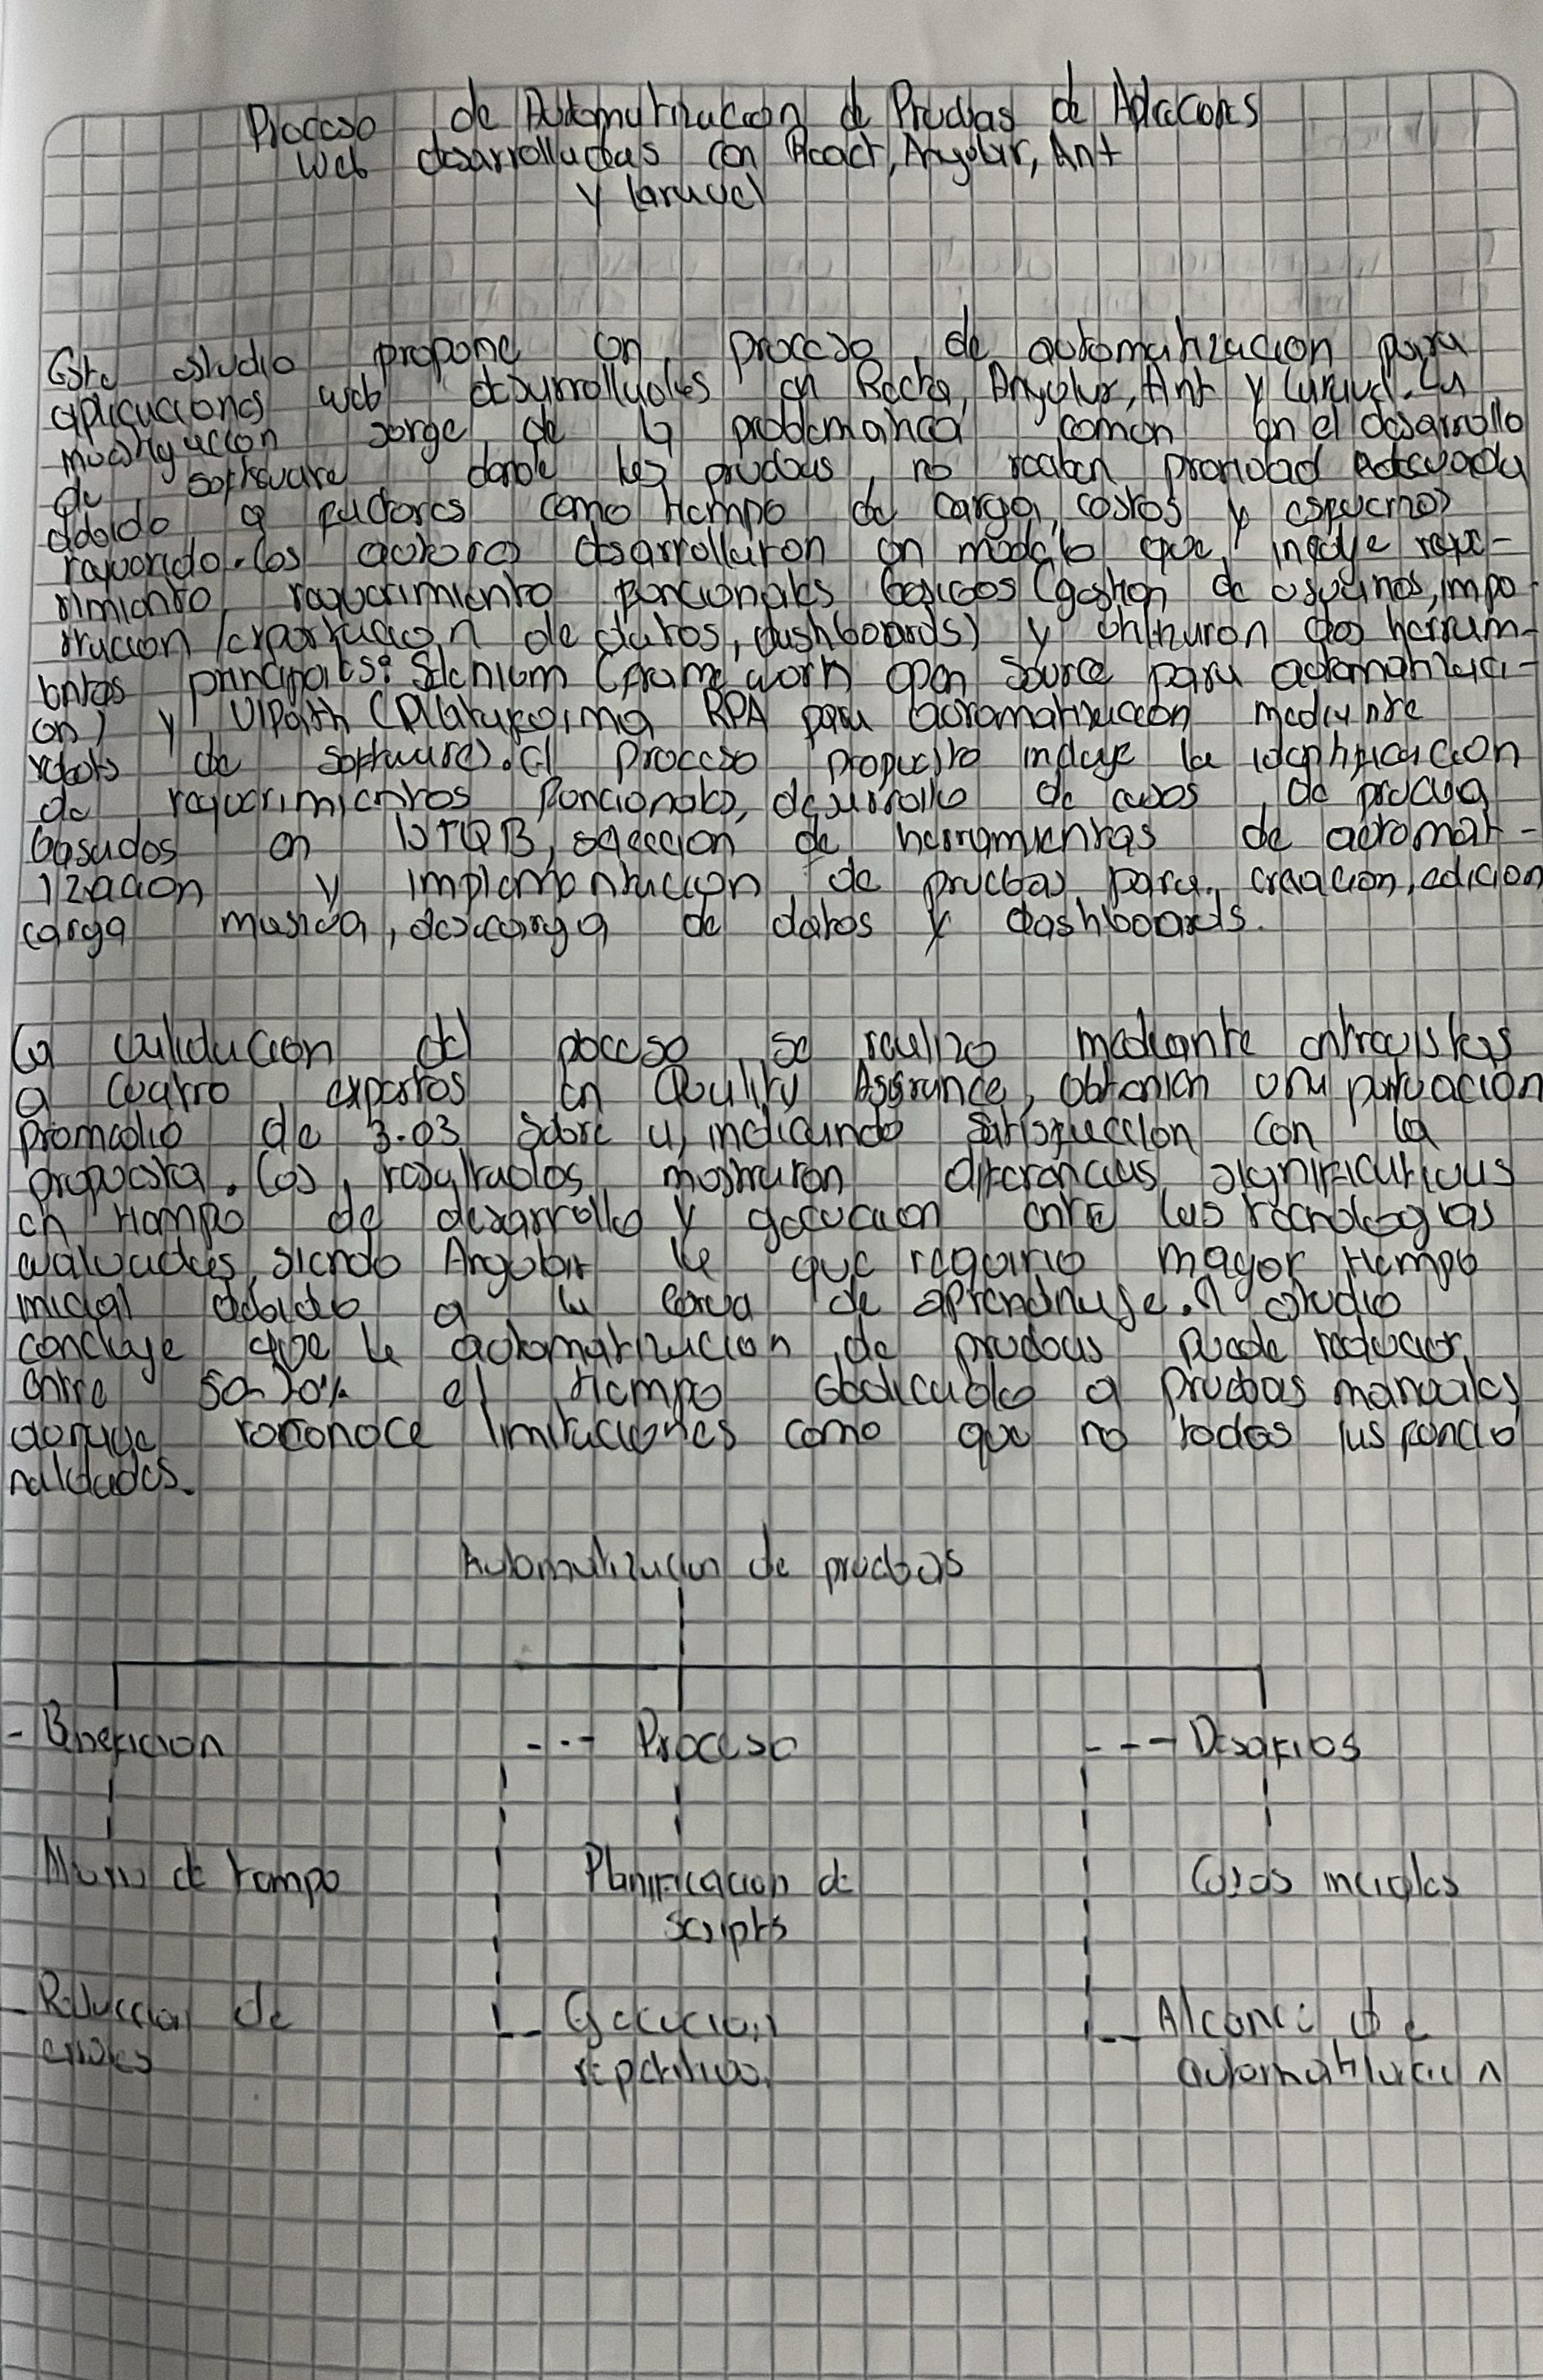 Proceso de Automatización de Pruebas de Aplicaciones
Web desarrolladas con React, Angular, Ant
y laravel
Este estudio propone un proceso de automatizacion para
aplicaciones web desarrolladas en Racta, Angular, Ant y Laravel. La
investigacion surge de la problematica comun en el desarrollo
de software donde las pruebas no reciben prioridad adecuada
debido a factores como tiempo de carga, costos y esfuerzo
requerido. los autores desarrollaron un modelo que incluye
rimiento requerimiento funcionales basicos (gestion de usuarios, impo
rtacion /exportacion de datos, dashboards) y utilizaron dos herram-
ientas principales: Selenium (framework open source para automatizaci-
on) y UIPath ( RPA para automatizacion mediante
robots de software). El proceso propuesto incluye la identificacion
de requerimientos funcionales, desarrollo de casos de prueba
basados en ISTQB, seleccion de herramientas de automat-
izacion y implementacion de pruebas para creacion, edicion
carga masiva, descarga de datos y dashboards.
La validacion del poceso se realizo mediante entrevistas
a cuatro expertos en Quality Assurance, obtenien una puntuación
promedio de 3.03 sobre 4, indicando satisfaccion con la
propuesta. los resultados mostraron diferencias significativas
en tiempo de desarrollo y ejecucion entre las tecnologias
evaluadas, siendo Angular la que requirio mayor tiempo
inicial debido a la curva de aprendizaje. El studio
concluye que la automatizacion de pruebas puede reducir
entre 50-70% el tiempo dedicado a pruebas manuales
aunque reconoce limitaciones como que no todas las funcio
nalidades.
Automatizacion de pruebas
- Beneficion --- Proceso --- Desafios
Ahorro de tiempo Planificacion de Costos iniciales
scripts
- Reduccion de Ejecucion Alcance de
errores repetitiva automatizacion